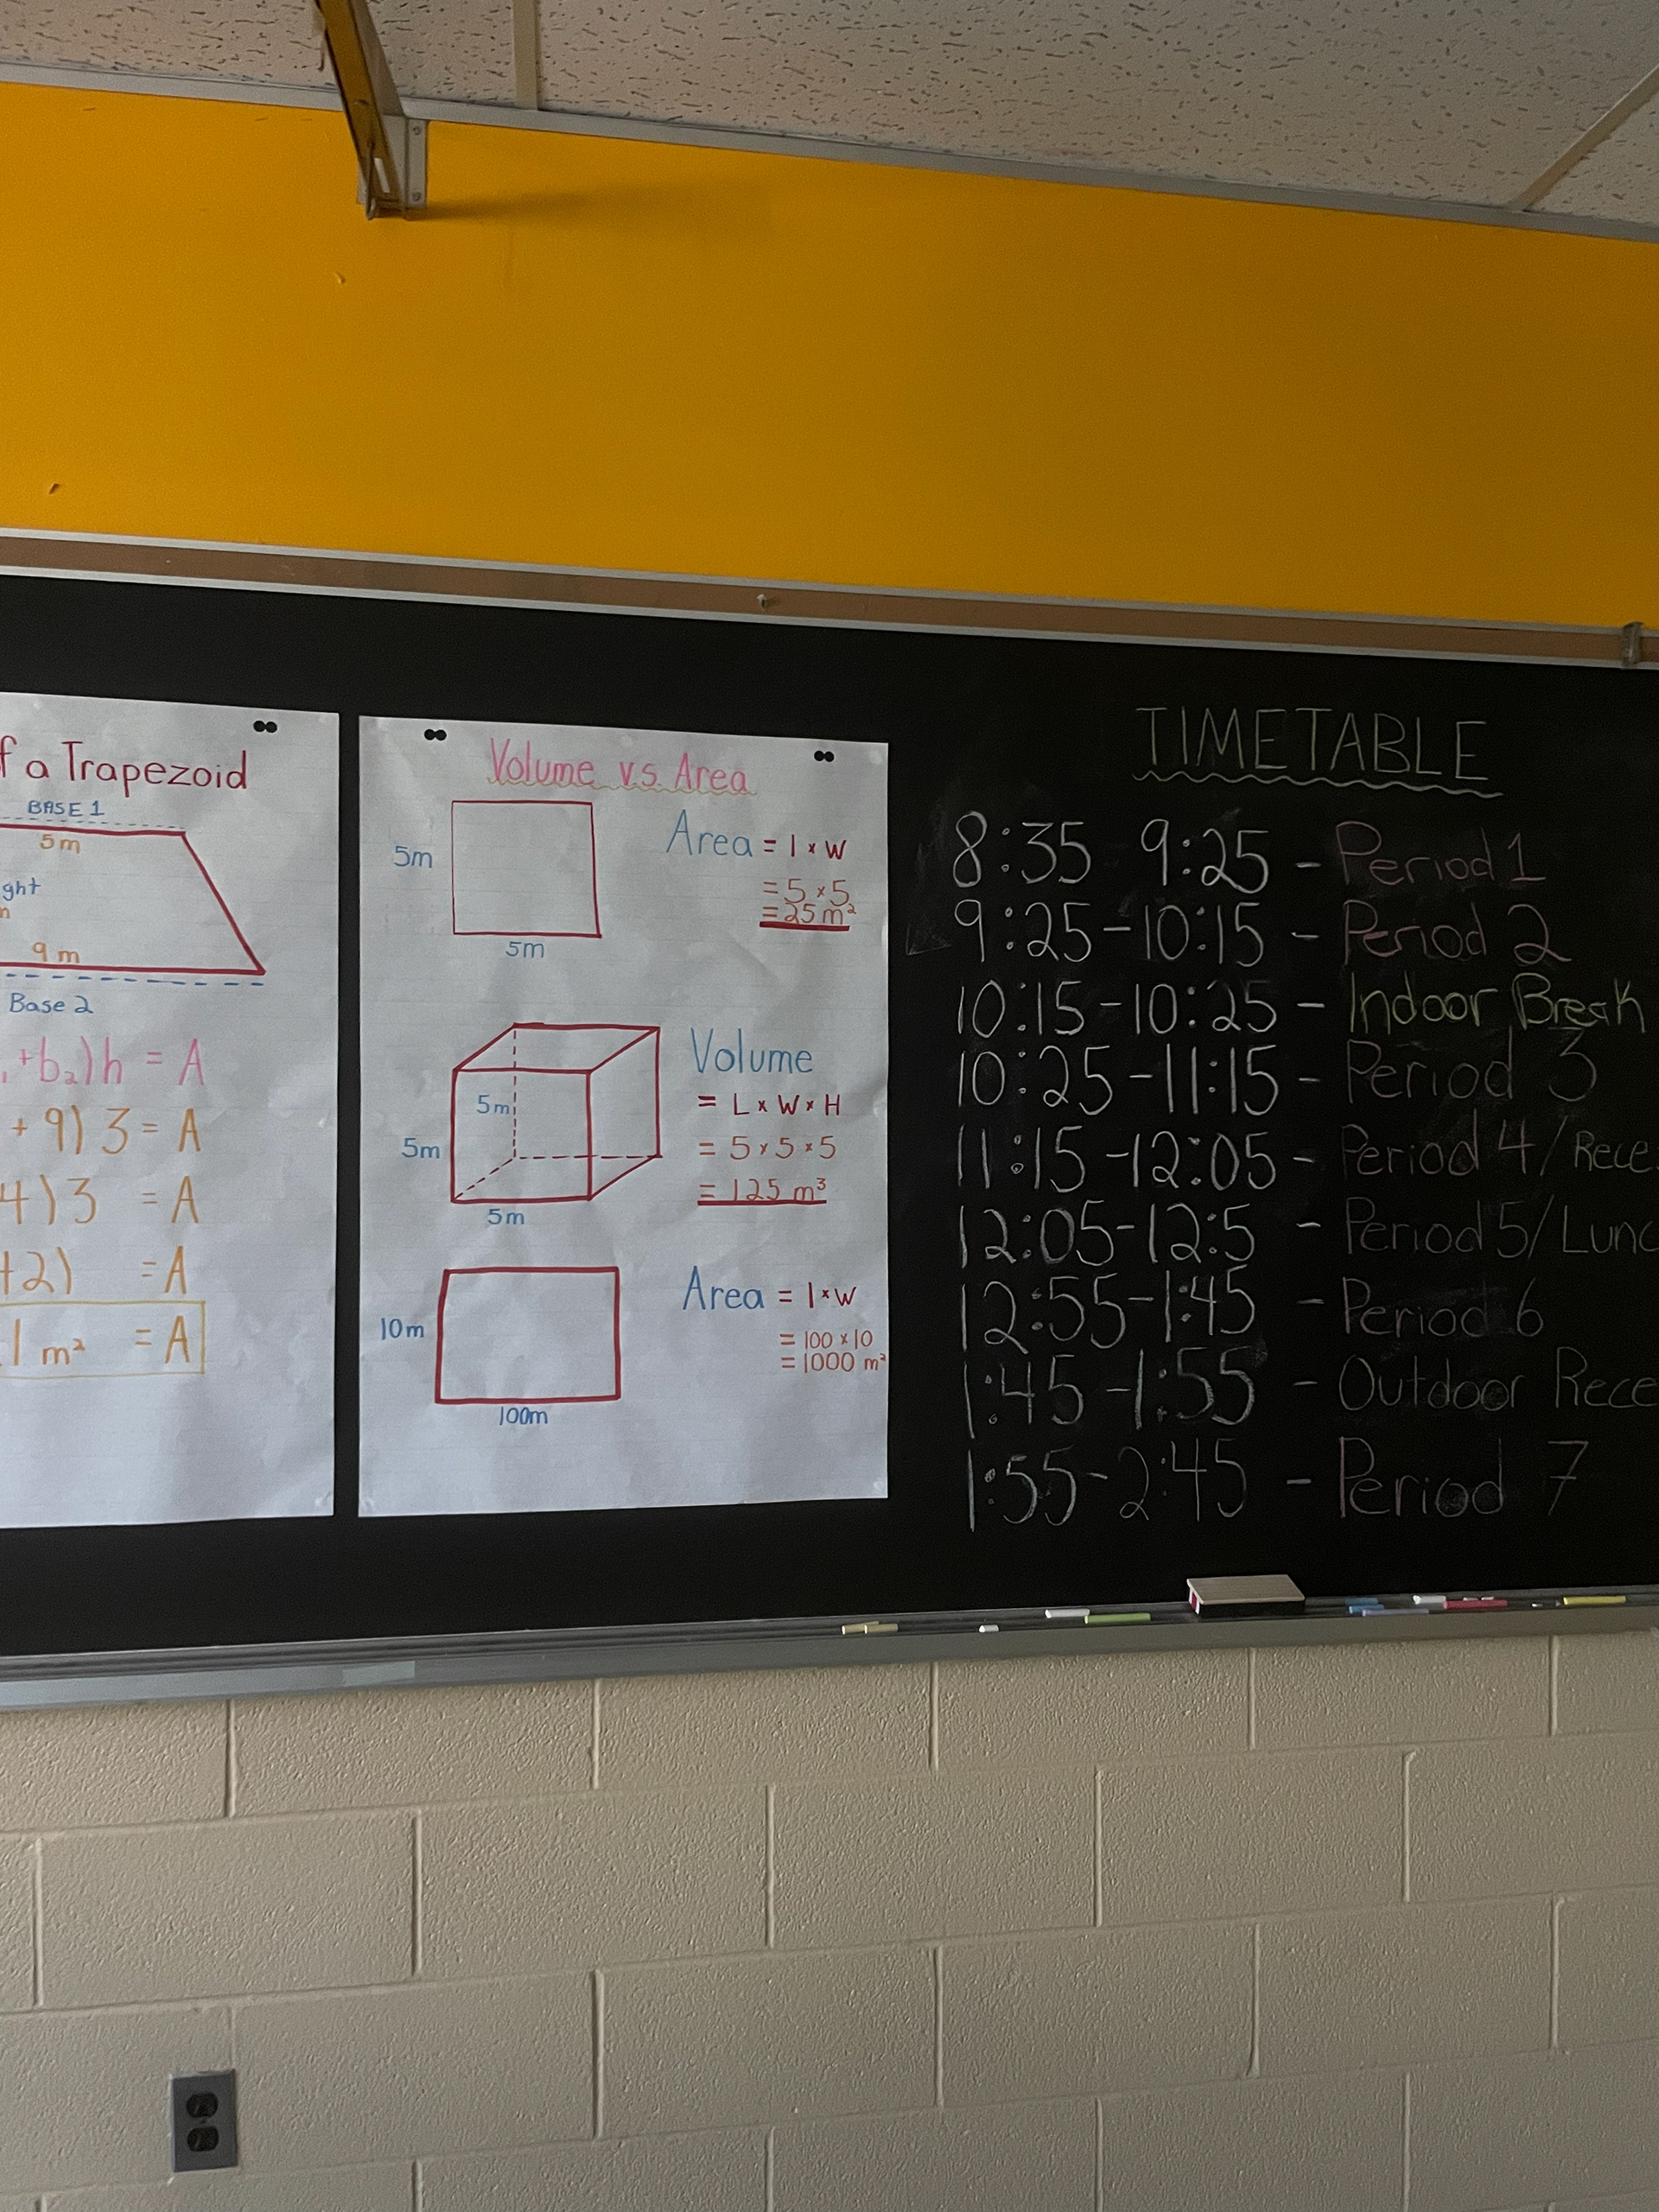 f a Trapezoid
BASE 1
5m
ght
9 m
Base 2
+b₂)h = A
+ 9) 3 = A
4)3 = A
2) = A
1 m² = A
Volume v.s. Area
5m
5m
Area = l × w
= 5 × 5
= 25 m²
5m
5m
5m
Volume
= L × W × H
= 5 × 5 × 5
= 125 m³
10m
100m
Area = l × w
= 100 × 10
= 1000 m²
TIMETABLE
8:35 9:25 - Period 1
9:25-10:15 - Period 2
10:15-10:25 - Indoor Break
10:25-11:15 - Period 3
11:15-12:05 - Period 4/ Rece
12:05-12:5 - Period 5/ Lunc
12:55-1:45 - Period 6
1:45-1:55 - Outdoor Rece
1:55-2:45 - Period 7